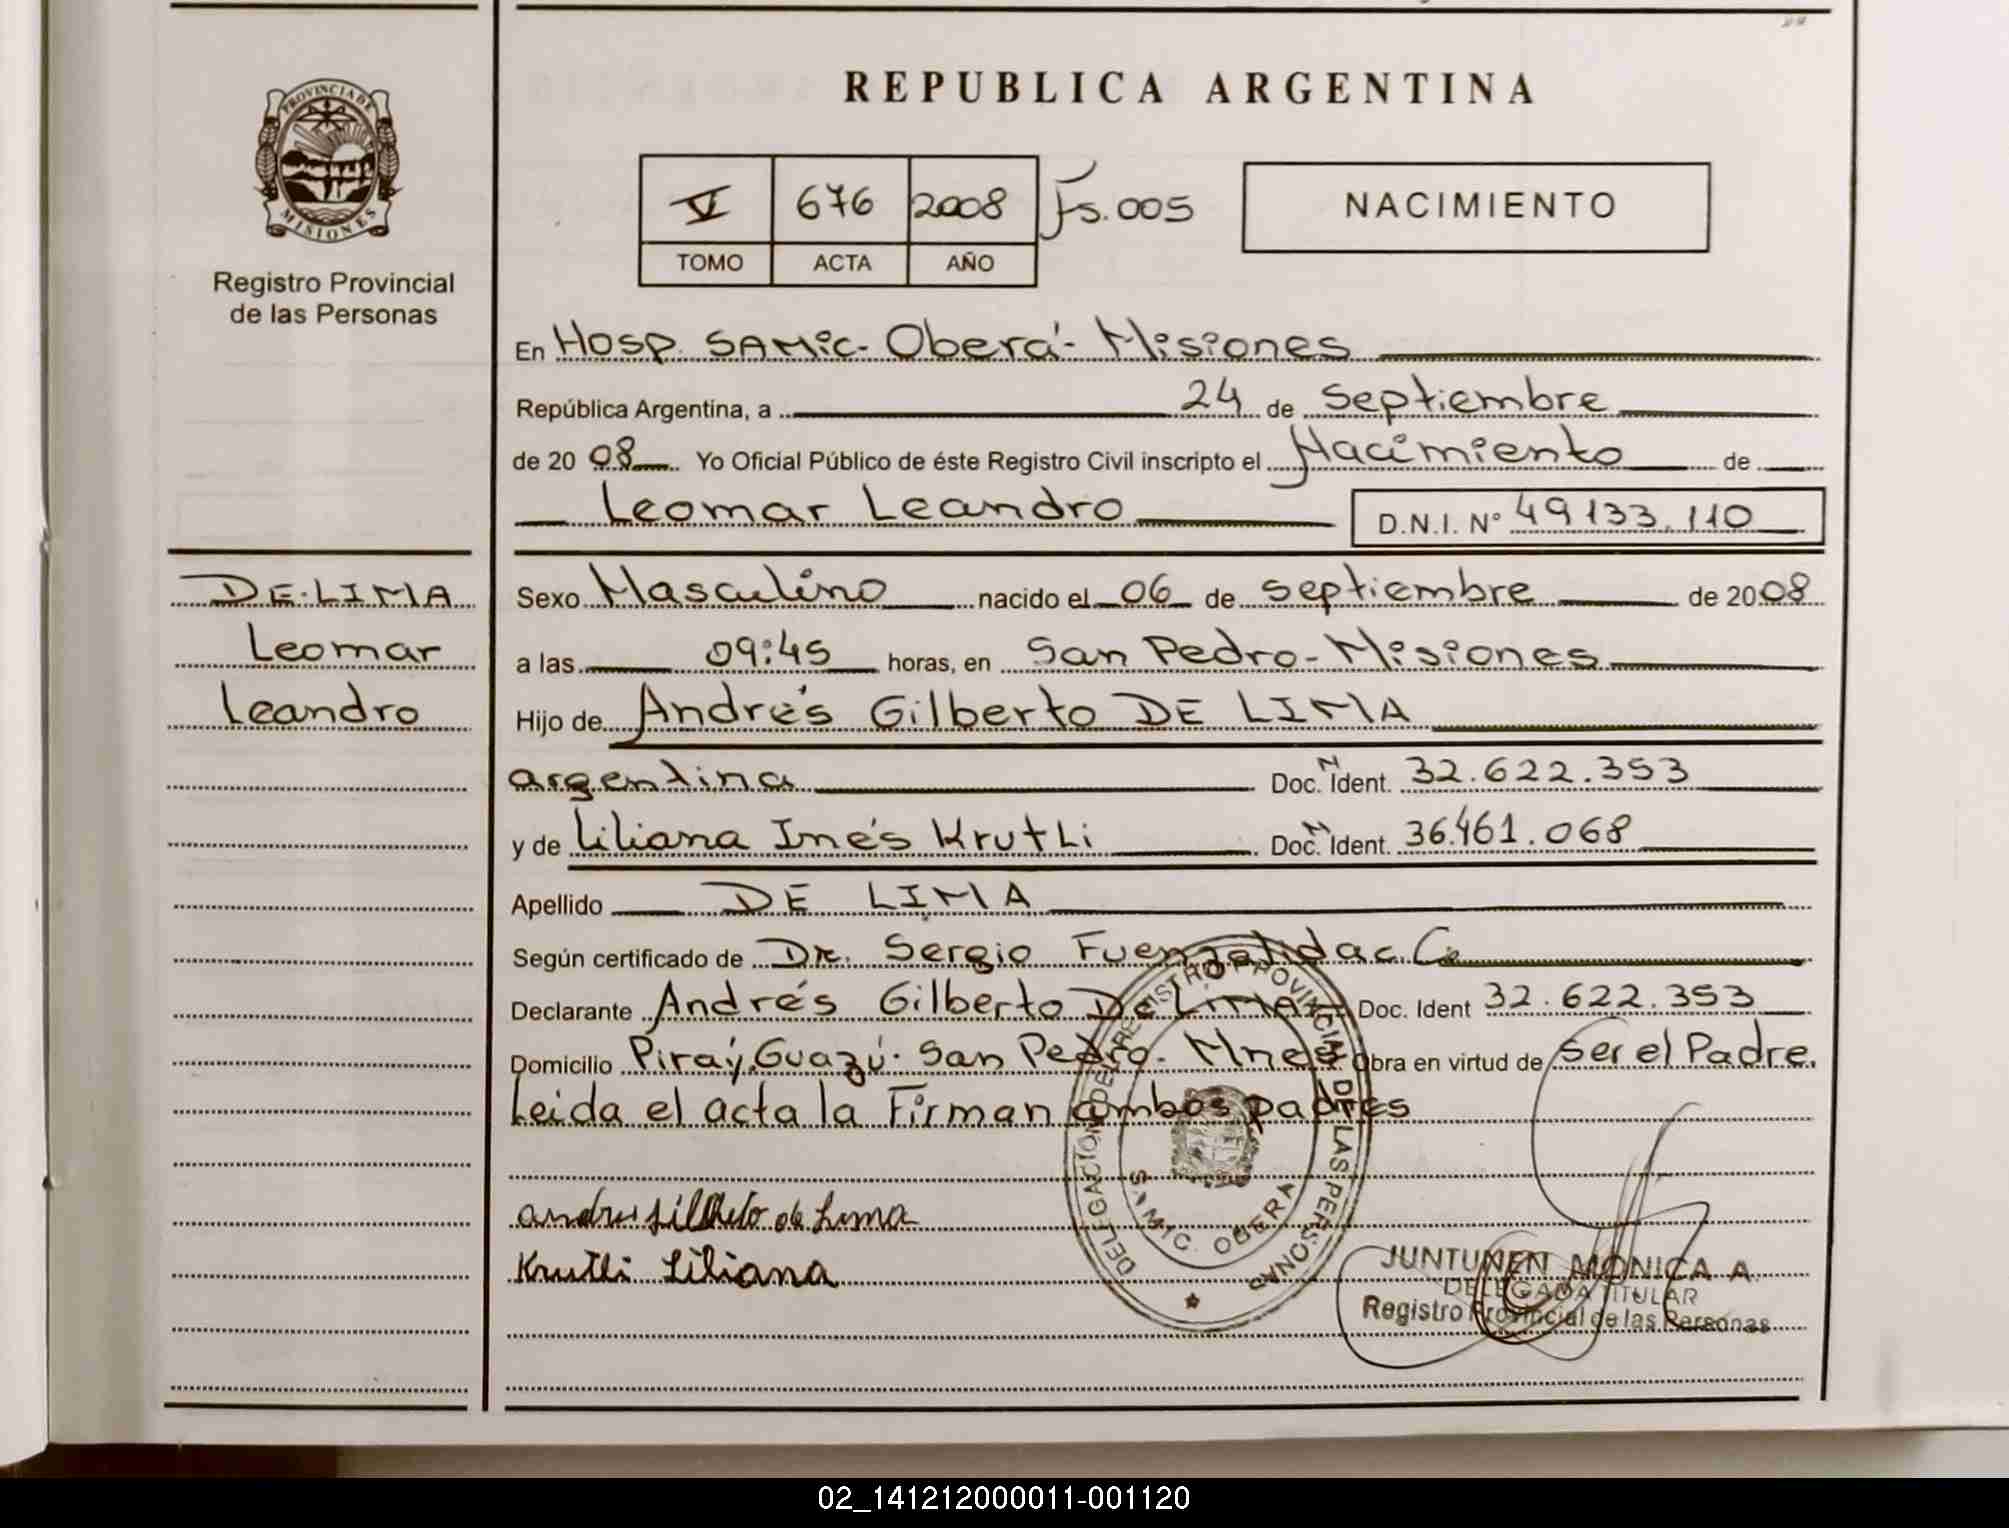 REPUBLICA ARGENTINA
PROVINCIA DE
MISIONES
Registro Provincial
de las Personas
VI 676 2008 Fs. 005
TOMO ACTA AÑO
NACIMIENTO
En Hosp. SAMic - Oberá - Misiones
República Argentina, a 24 de septiembre
de 20 08 Yo Oficial Público de éste Registro Civil inscripto el Nacimiento de
Leomar Leandro D.N.I. N° 49133.110
DE LIMA
Leomar
Leandro
Sexo Masculino nacido el 06 de septiembre de 20 08
a las 09:45 horas, en San Pedro - Misiones
Hijo de Andrés Gilberto DE LIMA
argentina Doc. N Ident. 32.622.353
y de Liliana Inés Krutli Doc. N Ident. 36.461.068
Apellido DE LIMA
Según certificado de Dr. Sergio Fuenzalida C.
Declarante Andrés Gilberto De LIMA Doc. Ident 32.622.353
Domicilio Piray Guazú - San Pedro - Mnes Obra en virtud de ser el Padre.
Leida el acta la Firman ambos padres
andres Gilberto de Lima
Krutli Liliana
DELEGACION DEL REGISTRO PROVINCIAL DE LAS PERSONAS
SAMIC. OBERA
JUNTUNEN MONICA A.
DELEGADA TITULAR
Registro Provincial de las Personas
02_141212000011-001120